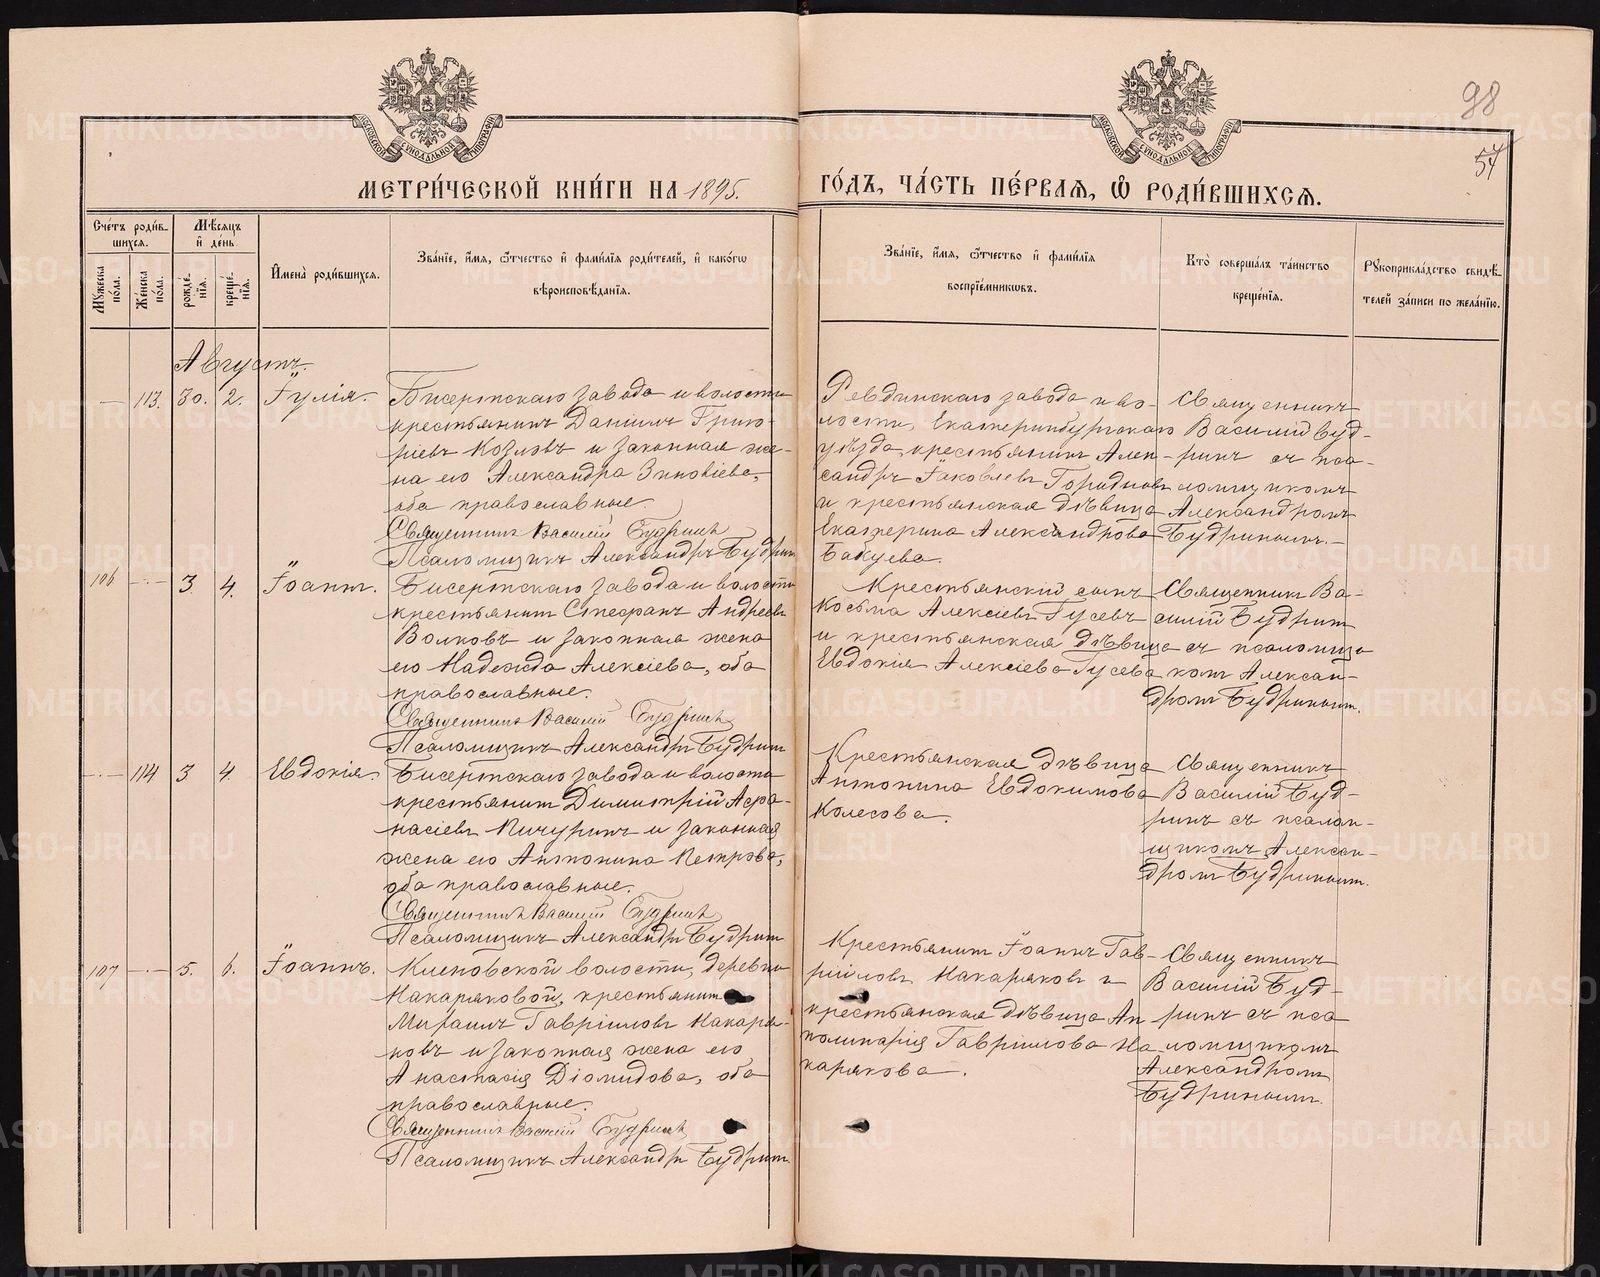 98
57
МЕТРИ́ЧЕСКОЙ КНИ́ГИ НА 1895.
ГО́ДЪ, ЧА́СТЬ ПЕ́РВАЯ, Ѡ҆ РОДИ́ВШИХСЯ.
Сче́тъ роди́в-
шихся.
Мѣ́сяцъ
и҆ де́нь.
Мꙋ́жеска по́ла.
Же́нска по́ла.
рожде́-
нїя.
креще́-
нїя.
И҆мена̀ роди́вшихся.
Зва́нїе, и҆́мя, ѻ҆́тчество и҆ фами́лїя роди́телей, и҆ како́гѡ
вѣроисповѣ́данїя.
Зва́нїе, и҆́мя, ѻ҆́тчество и҆ фами́лїя
воспрїе́мникѡвъ.
Кто̀ соверша́лъ та́инство
креще́нїя.
Рꙋкоприкла́дство свидѣ́-
телей за́писи по жела́нїю.
Августъ.
— 113. 30. 2. Іулія.
Бисертскаго завода и волости
крестьянинъ Даніилъ Григо-
ріевъ Козловъ и законная же-
на его Александра Зиновіева,
оба православные.
Священникъ Василій Будринъ
Псаломщикъ Александръ Будрин
Ревдинскаго завода и во-
лости, Екатеринбургскаго
уѣзда, крестьянинъ Алек-
сандръ Іаковлевъ
и крестьянская дѣвица
Екатерина Александрова
Бакуева.
Священникъ
Василій Буд-
ринъ съ пса-
ломщикомъ
Александромъ
Будринымъ.
106 — 3 4. Іоаннъ.
Бисертскаго завода и волости
крестьянинъ Стефанъ Андреевъ
Волковъ и законная жена
его Надежда Алексіева, оба
православные.
Священникъ Василій Будринъ
Псаломщикъ Александръ Будринъ
Крестьянскій сынъ
Косьма Алексіевъ Гусевъ
и крестьянская дѣвица
Евдокія Алексіева Гусева
Священникъ Ва-
силій Будринъ
съ псаломщи
комъ Алексан-
дромъ Будринымъ.
— 114 3 4. Евдокія.
Бисертскаго завода и волости
крестьянинъ Димитрій Афа-
насіевъ Пичугинъ и законная
жена его Антонина Петрова,
оба православные.
Священникъ Василій Будринъ
Псаломщикъ Александръ Будринъ
Крестьянская дѣвица
Антонина Евдокимова
Колесова.
Священникъ
Василій Буд-
ринъ съ псалом-
щикомъ Алексан-
дромъ Будринымъ.
107 — 5. 6. Іоаннъ.
Кленовской волости, деревни
Макаряковой, крестьянинъ
Михаилъ Гавріиловъ Макаря-
ковъ и законная жена его
Анастасія Діомидова, оба
православные.
Священникъ Василій Будринъ
Псаломщикъ Александръ Будринъ
Крестьянинъ Іоаннъ Гав-
ріиловъ Макаряковъ и
крестьянская дѣвица Ап
полинарія Гавріилова Ма
карякова.
Священникъ
Василій Буд-
ринъ съ пса
ломщикомъ
Александромъ
Будринымъ.
METRIKI.GASO-URAL.RU